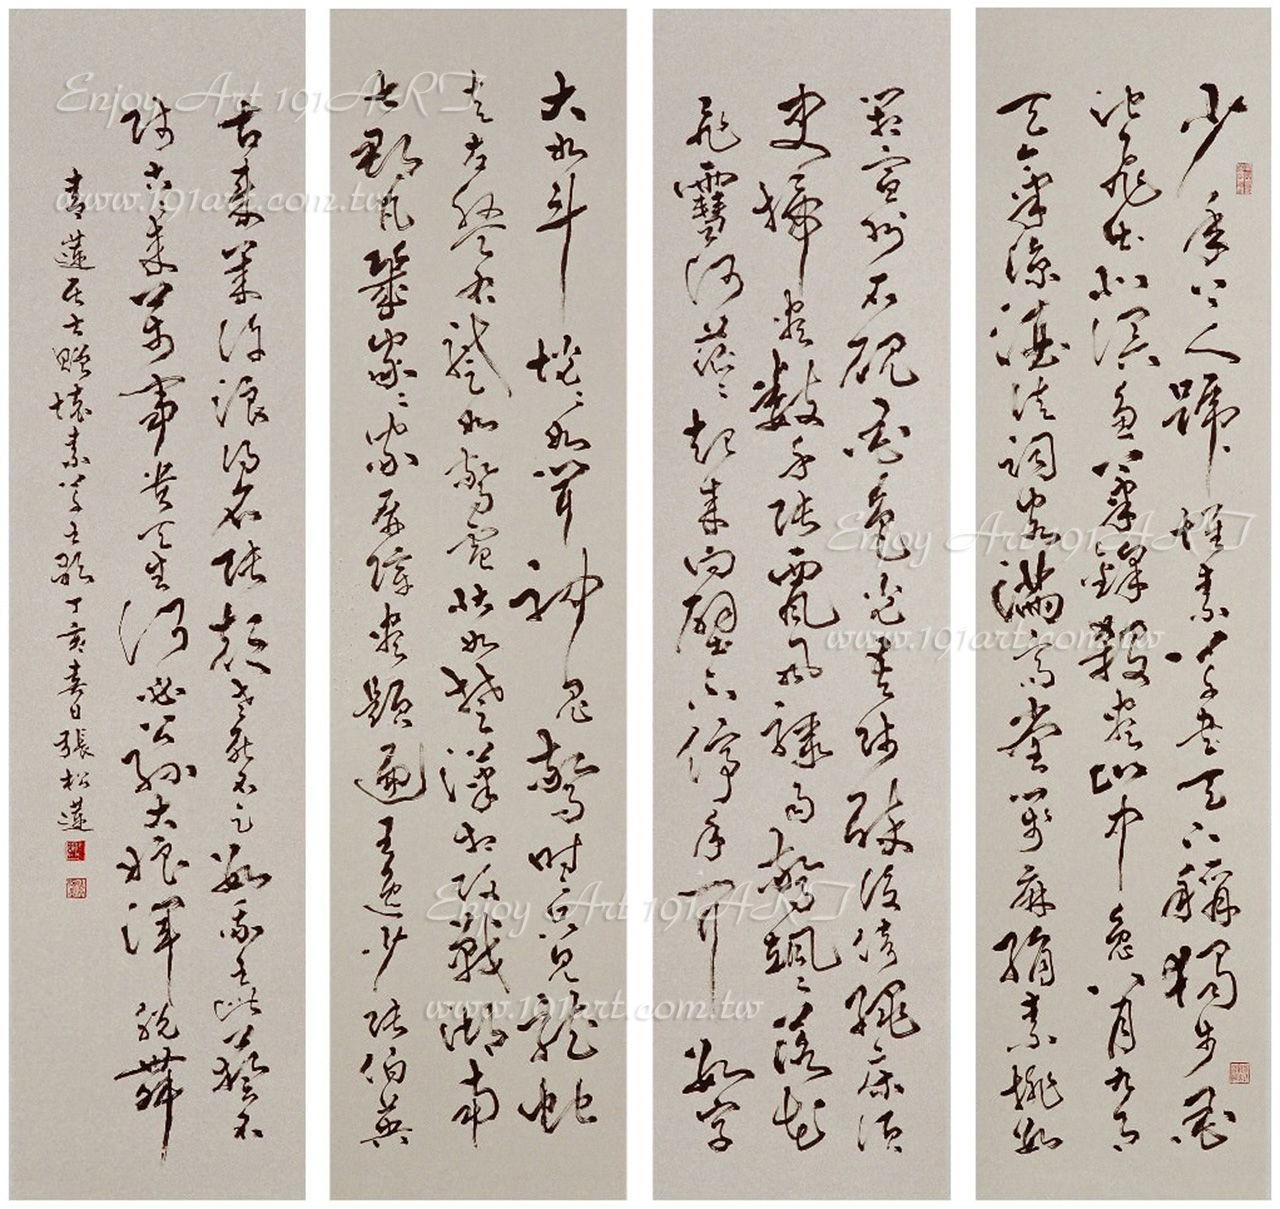 少年上人號懷素草書天下稱獨步墨
池飛出北溟魚筆鋒殺盡山中兔八月九月
天氣涼酒徒詞客滿高堂箋麻絹素排數
箱宣州石硯墨色光吾師醉後倚繩床須
臾掃盡數千張飄風驟雨驚颯颯落花
飛雪何茫茫起來向壁不停手一行數字
大如斗怳怳如聞神鬼驚時時只見龍蛇
走左盤右蹙如驚電狀如楚漢相攻戰湖南
七郡凡幾家家家屏障盡題遍王逸少張伯英
古來幾許浪得名張顛老死不足數我師此義不
師古古來萬事貴天生何必公孫大娘渾脫舞
青蓮居士贈懷素草書歌丁亥春日張松蓮
Enjoy Art 191ART
www.191art.com.tw
Enjoy Art 191ART
www.191art.com.tw
Enjoy Art 191ART
www.191art.com.tw